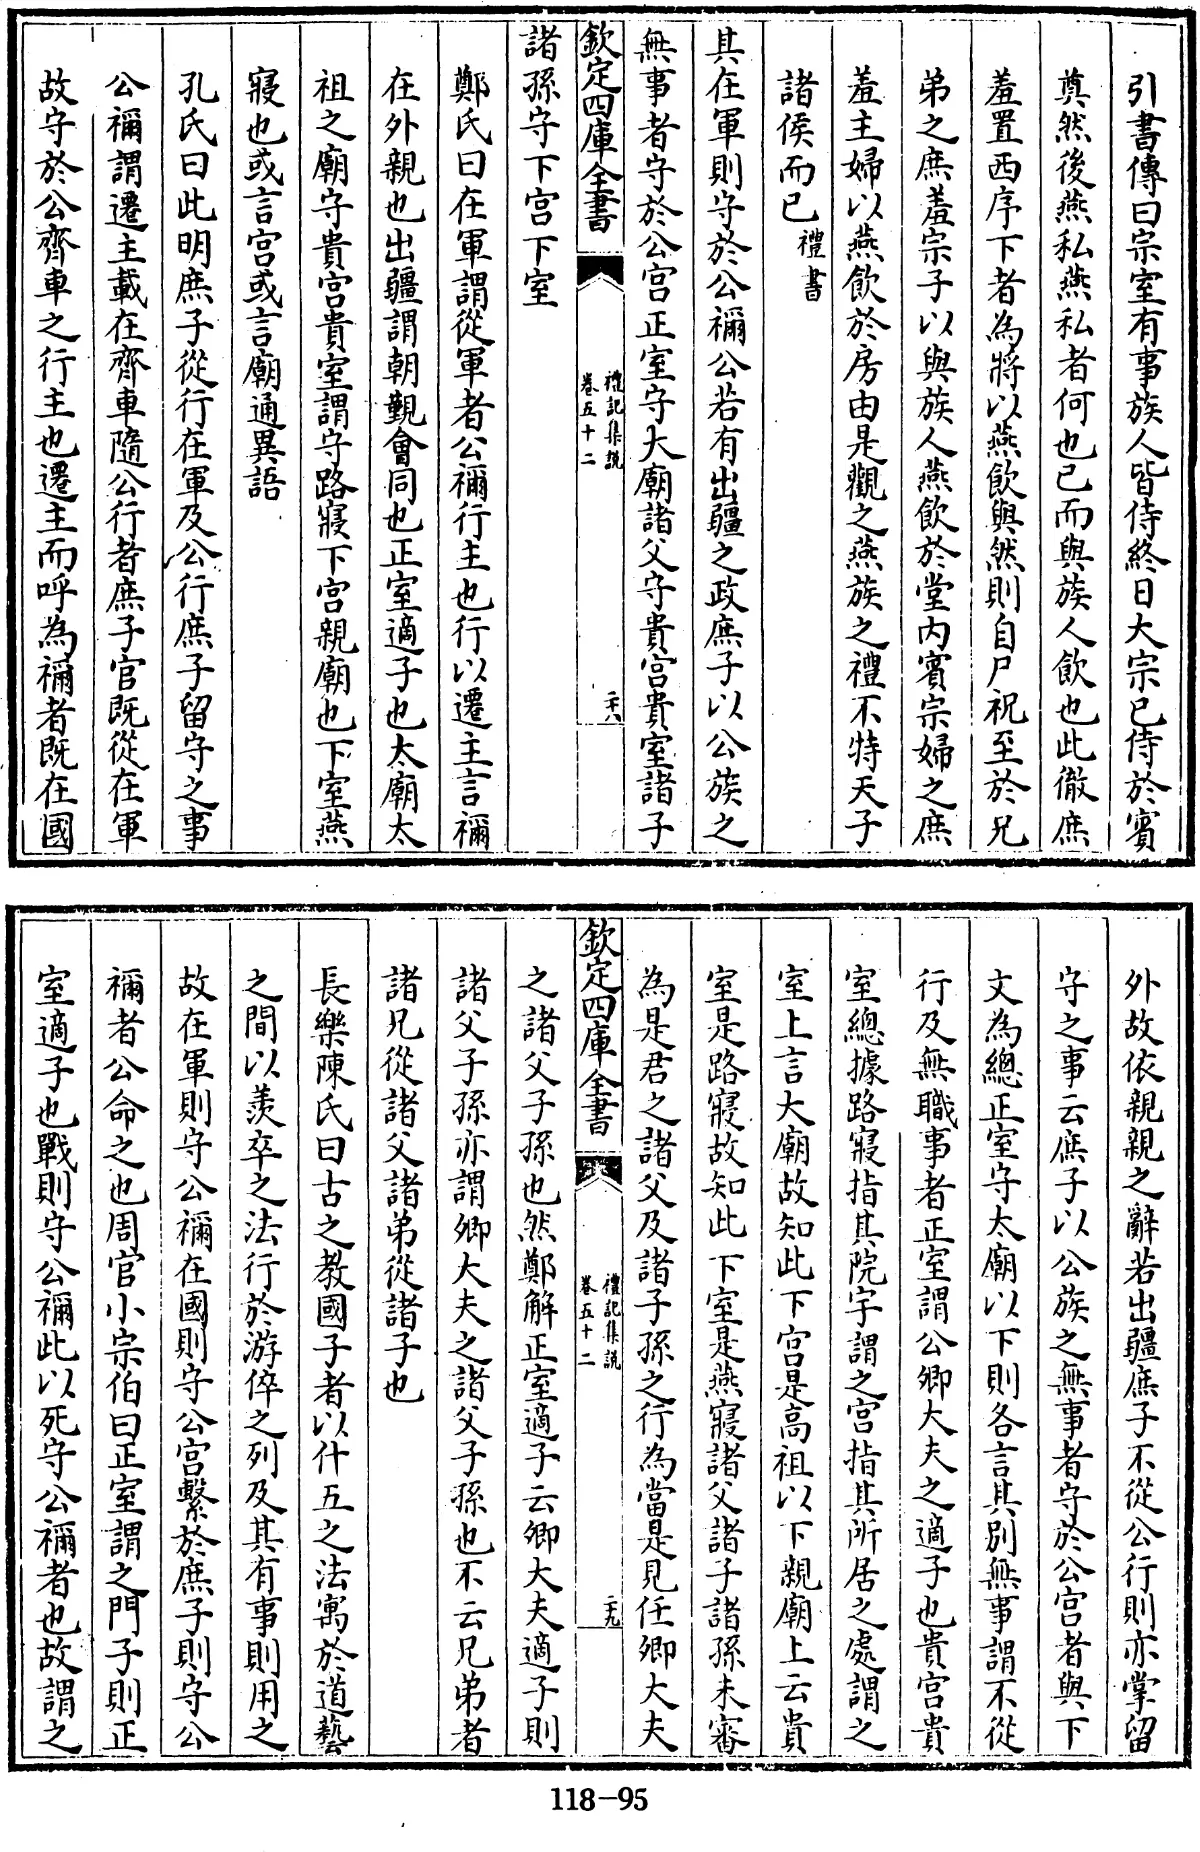 引書傳曰宗室有事族人皆侍終日大宗已侍於賓
奠然後燕私燕私者何也已而與族人飲也此徹庶
羞置西序下者為將以燕飲與然則自尸祝至於兄
弟之庶羞宗子以與族人燕飲於堂内賓宗婦之庶
羞主婦以燕飲於房由是觀之燕族之禮不特天子
諸侯而已禮書
其在軍則守於公禰公若有出疆之政庶子以公族之
無事者守於公宫正室守大廟諸父守貴宫貴室諸子
欽定四庫全書
禮記集説
卷五十二
二十八
諸孫守下宫下室
鄭氏曰在軍謂從軍者公禰行主也行以遷主言禰
在外親也出疆謂朝覲會同也正室適子也太廟太
祖之廟守貴宫貴室謂守路寢下宫親廟也下室燕
寢也或言宫或言廟通異語
孔氏曰此明庶子從行在軍及公行庶子留守之事
公禰謂遷主載在齊車隨公行者庶子官既從在軍
故守於公齊車之行主也遷主而呼為禰者既在國
外故依親親之辭若出疆庶子不從公行則亦掌留
守之事云庶子以公族之無事者守於公宫者與下
文為總正室守太廟以下則各言其别無事謂不從
行及無職事者正室謂公卿大夫之適子也貴宫貴
室總據路寢指其院宇謂之宫指其所居之處謂之
室上言大廟故知此下宫是高祖以下親廟上云貴
室是路寢故知此下室是燕寢諸父諸子諸孫未審
為是君之諸父及諸子孫之行為當是見任卿大夫
欽定四庫全書
禮記集説
卷五十二
二十九
之諸父子孫也然鄭解正室適子云卿大夫適子則
諸父子孫亦謂卿大夫之諸父子孫也不云兄弟者
諸兄從諸父諸弟從諸子也
長樂陳氏曰古之教國子者以什五之法寓於道藝
之間以羨卒之法行於游倅之列及其有事則用之
故在軍則守公禰在國則守公宫繫於庶子則守公
禰者公命之也周官小宗伯曰正室謂之門子則正
室適子也戰則守公禰此以死守公禰者也故謂之
118-95